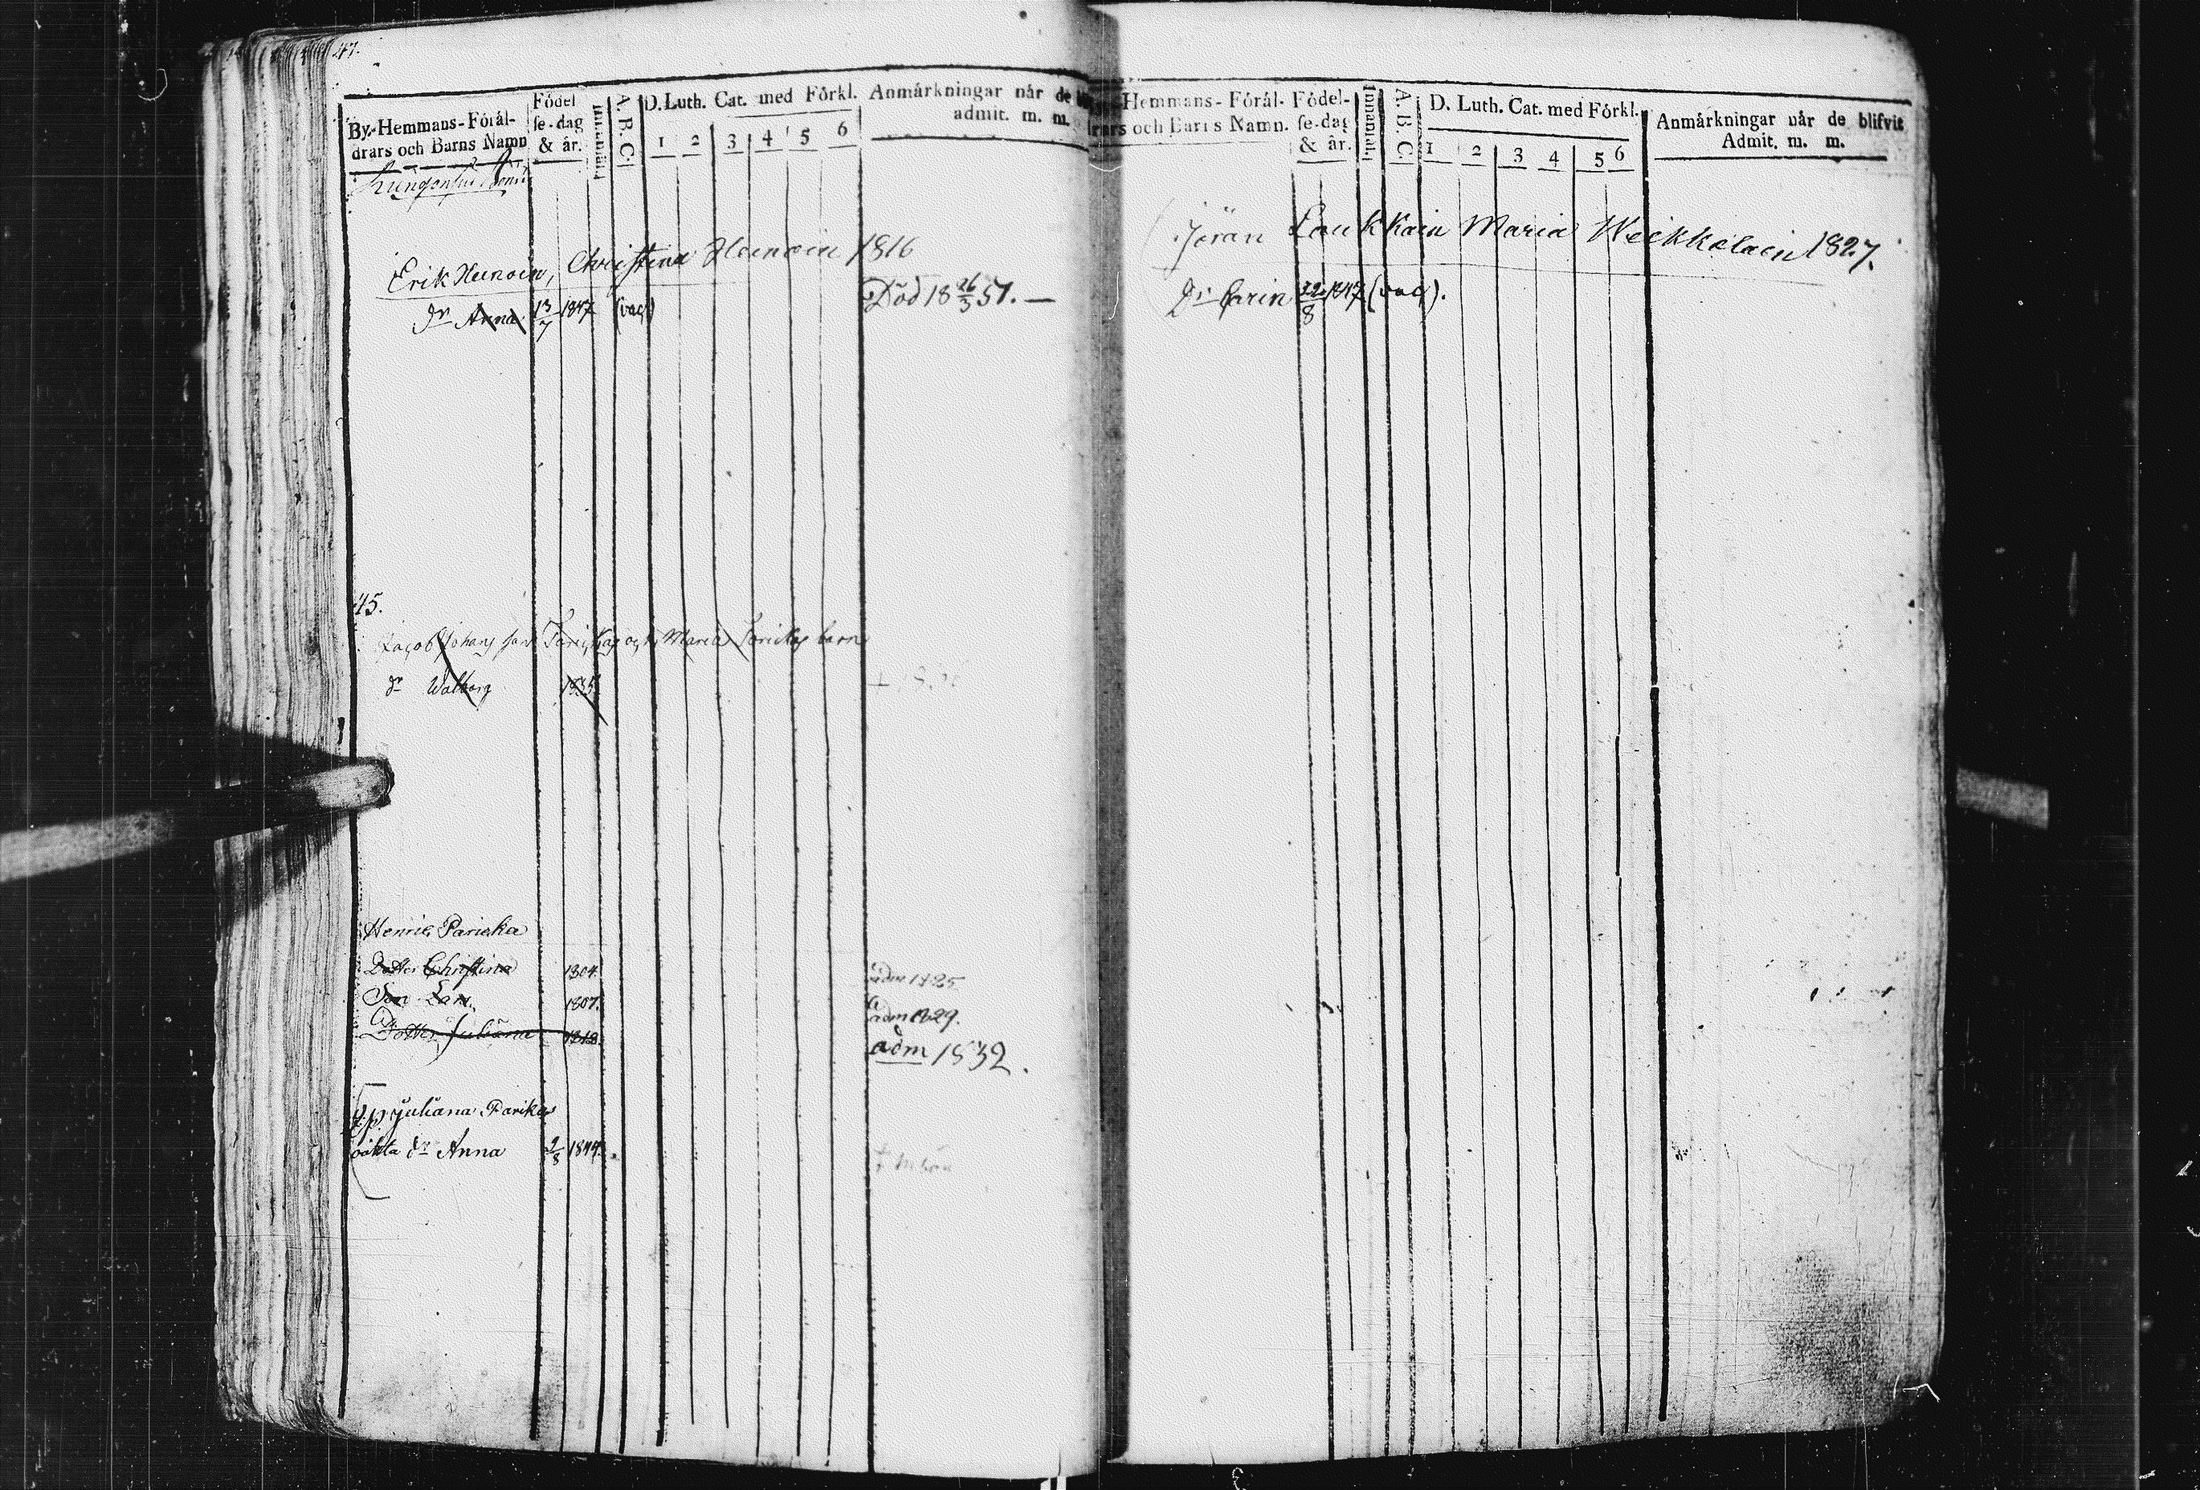 47.
By-Hemmans-Förål-
drars och Barns Namn
Födel
se-dag
& år.
Innantil.
A. B. C.
D. Luth. Cat. med Förkl.
1 2 3 4 5 6
Anmårkningar når de
admit. m. m.
Erik Heinoin, Christina Heinoin 1816
dr Anna 13/7 1847 (vac) Död 18 26/3 51. —
45.
Jacob Johans son Parikas och Maria barn
dr Walborg 1835
Henric Paricka
Dotter Christina 1804. adm 1825
Son Lars 1807. adm 1829.
Dotter Juliana 1818 adm 1832.
Juliana Parikas
oäkta dr Anna 2/8 1844.
Hemmans-Förål-
drars och Barns Namn.
Födel-
se-dag
& år.
Innantil.
A. B. C.
D. Luth. Cat. med Förkl.
1 2 3 4 5 6
Anmårkningar når de blifvit
Admit, m. m.
Jöran Loukkain Maria Weikkolain 1827.
dr Carin 22/8 1847 (vac).